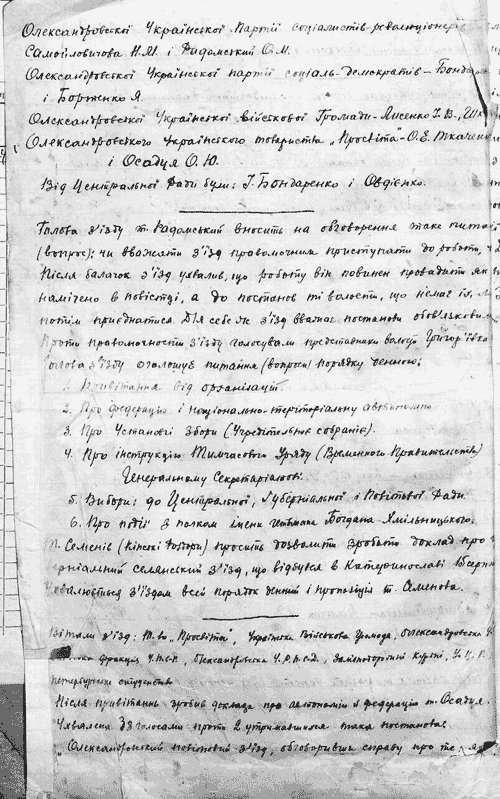 Олександровської Української Партії соціалістів-революціонерів
Самойловичова Н.М. і Радомський О.М.
Олександровської Української партії соціаль-демократів - Бондар
і Борженко Я.
Олександровської Української військової Громади - Лисенко І.В.,
Олександровського Українського товариства „Просвіта" - О.Е. Ткаченко
і Осадця О.Ю.
Від Центральної Ради були: Г. Бондаренко і Овдієнко.
Голова з'їзду т. Радомський вносить на обговорення таке питан
(вопрос): чи вважати з'їзд правомочним приступати до роботи,
Після балачок з'їзд ухвалив, що роботу він повинен провадити як
намічено в повістці, а до постанов ті волости, що немає їх,
потім приєднатися. Для себе ж з'їзд вважає постанови обов'язковим
Проти правомочности з'їзду голосували представники волос. Григор'ївк
Голова з'їзду оголошує питання (вопроси) порядку денного:
1. Привітання від організацій.
2. Про федерацію і національно-територіальну автономію
3. Про Установчі Збори (Учредительное собрание).
4. Про інструкцію Тимчасового Уряду (Временного Правительства)
Генеральному Секретаріатові.
5. Вибори: до Центральної, Губерніальної і Повітової Ради.
6. Про події з полком імени гетьмана Богдана Хмільницького.
Т. Семенів (Кінські Роздори) просить дозволити зробити доклад про
губерніальний селянський з'їзд, що відбувся в Катеринославі
Ухвалюється з'їздом весь порядок денний і пропозіція т. Семенова.
Вітали з'їзд: Т-во „Просвіта", Українська Військова Громада, Олександровська
фракція У.П.С-Р., Олександровська У.Р.П.С-Д.,
петербурське студенство
Після привітаннь зробив доклад про автономію й федерацію т. Осадця.
Ухвалена 38 голосами проти 2 утримавшихся така постанова:
„Олександровський повітовий з'їзд, обговоривши справу про те